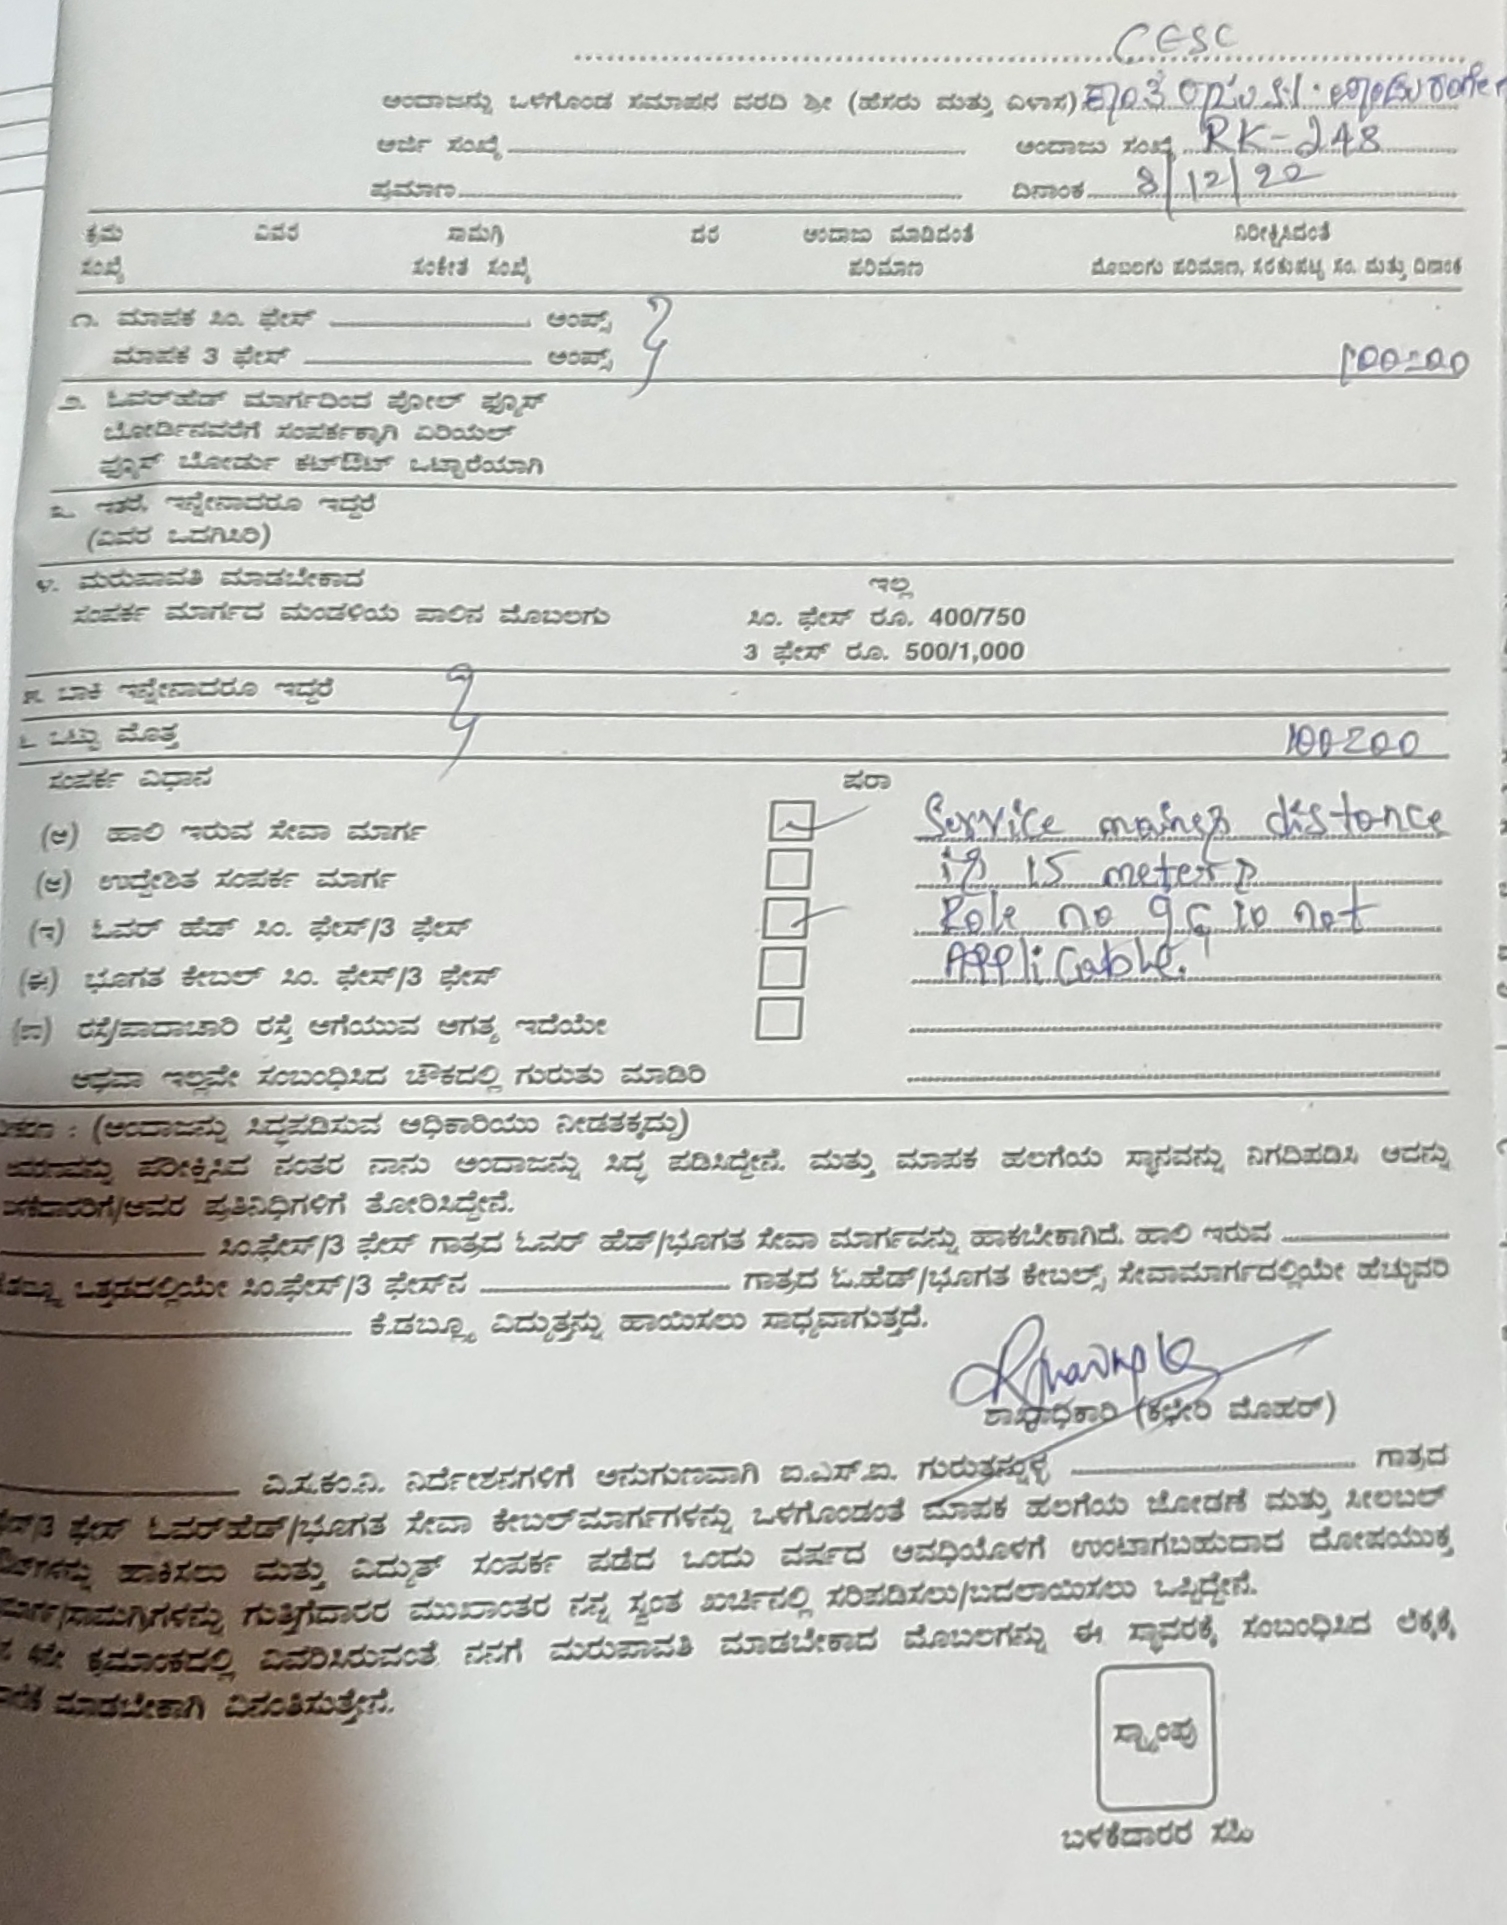 CESC
ಅಂದಾಜನ್ನು ಒಳಗೊಂಡ ಸಮಾಪನ ವರದಿ ಶ್ರೀ (ಹೆಸರು ಮತ್ತು ವಿಳಾಸ)
ಅರ್ಜಿ ಸಂಖ್ಯೆ ಅಂದಾಜು ಸಂಖ್ಯೆ RK-248
ಪ್ರಮಾಣ ದಿನಾಂಕ 8/12/22
ಕ್ರಮ ವಿವರ ಸಾಮಗ್ರಿ ದರ ಅಂದಾಜು ಮಾಡಿದಂತೆ ನಿರೀಕ್ಷಿಸಿದಂತೆ
ಸಂಖ್ಯೆ ಸಂಕೇತ ಸಂಖ್ಯೆ ಪರಿಮಾಣ ಮೊಬಲಗು ಪರಿಮಾಣ, ಸರಕುಪಟ್ಟಿ ಸಂ. ಮತ್ತು ದಿನಾಂಕ
೧. ಮಾಪಕ ಸಿಂ. ಫೇಸ್ ಅಂಪ್ಸ್
ಮಾಪಕ 3 ಫೇಸ್ ಅಂಪ್ಸ್ 100=00
೨. ಓವರ್‌ಹೆಡ್ ಮಾರ್ಗದಿಂದ ಪೋಲ್ ಫ್ಯೂಸ್
ಬೋರ್ಡಿನವರೆಗೆ ಸಂಪರ್ಕಕ್ಕಾಗಿ ಏರಿಯಲ್
ಫ್ಯೂಸ್ ಬೋರ್ಡು ಕಟ್‌ಔಟ್ ಒಟ್ಟಾರೆಯಾಗಿ
೩. ಇತರೆ, ಇನ್ನೇನಾದರೂ ಇದ್ದರೆ
(ವಿವರ ಒದಗಿಸಿರಿ)
೪. ಮರುಪಾವತಿ ಮಾಡಬೇಕಾದ ಇಲ್ಲ
ಸಂಪರ್ಕ ಮಾರ್ಗದ ಮಂಡಳಿಯ ಪಾಲಿನ ಮೊಬಲಗು ಸಿಂ. ಫೇಸ್ ರೂ. 400/750
3 ಫೇಸ್ ರೂ. 500/1,000
೫. ಬಾಕಿ ಇನ್ನೇನಾದರೂ ಇದ್ದರೆ
೬. ಒಟ್ಟು ಮೊತ್ತ 100=00
ಸಂಪರ್ಕ ವಿಧಾನ ಷರಾ
(ಅ) ಹಾಲಿ ಇರುವ ಸೇವಾ ಮಾರ್ಗ Service mains distance
(ಆ) ಉದ್ದೇಶಿತ ಸಂಪರ್ಕ ಮಾರ್ಗ is 15 meters
(ಇ) ಓವರ್ ಹೆಡ್ ಸಿಂ. ಫೇಸ್/3 ಫೇಸ್ no not
(ಈ) ಭೂಗತ ಕೇಬಲ್ ಸಿಂ. ಫೇಸ್/3 ಫೇಸ್ Applicable.
(ಉ) ರಸ್ತೆ/ಪಾದಾಚಾರಿ ರಸ್ತೆ ಅಗೆಯುವ ಅಗತ್ಯ ಇದೆಯೇ
ಅಥವಾ ಇಲ್ಲವೇ ಸಂಬಂಧಿಸಿದ ಚೌಕದಲ್ಲಿ ಗುರುತು ಮಾಡಿರಿ
: (ಅಂದಾಜನ್ನು ಸಿದ್ಧಪಡಿಸುವ ಅಧಿಕಾರಿಯು ನೀಡತಕ್ಕದ್ದು)
ಪರೀಕ್ಷಿಸಿದ ನಂತರ ನಾನು ಅಂದಾಜನ್ನು ಸಿದ್ಧ ಪಡಿಸಿದ್ದೇನೆ. ಮತ್ತು ಮಾಪಕ ಹಲಗೆಯ ಸ್ಥಾನವನ್ನು ನಿಗದಿಪಡಿಸಿ ಅದನ್ನು
ಪ್ರತಿನಿಧಿಗಳಿಗೆ ತೋರಿಸಿದ್ದೇನೆ.
ಸಿಂ.ಫೇಸ್/3 ಫೇಸ್ ಗಾತ್ರದ ಓವರ್ ಹೆಡ್/ಭೂಗತ ಸೇವಾ ಮಾರ್ಗವನ್ನು ಹಾಕಬೇಕಾಗಿದೆ. ಹಾಲಿ ಇರುವ
ಒತ್ತಡದಲ್ಲಿಯೇ ಸಿಂ.ಫೇಸ್/3 ಫೇಸ್‌ನ ಗಾತ್ರದ ಓ.ಹೆಡ್/ಭೂಗತ ಕೇಬಲ್ಸ್ ಸೇವಾಮಾರ್ಗದಲ್ಲಿಯೇ ಹೆಚ್ಚುವರಿ
ಕೆ.ಡಬ್ಲ್ಯೂ ವಿದ್ಯುತ್ತನ್ನು ಹಾಯಿಸಲು ಸಾಧ್ಯವಾಗುತ್ತದೆ.
ಶಾಖಾಧಿಕಾರಿ (ಕಛೇರಿ ಮೊಹರ್)
ವಿ.ಸ.ಕಂ.ನಿ. ನಿರ್ದೇಶನಗಳಿಗೆ ಅನುಗುಣವಾಗಿ ಐ.ಎಸ್.ಐ. ಗುರುತನ್ನುಳ್ಳ ಗಾತ್ರದ
ಫೇಸ್ ಓವರ್‌ಹೆಡ್/ಭೂಗತ ಸೇವಾ ಕೇಬಲ್‌ಮಾರ್ಗಗಳನ್ನು ಒಳಗೊಂಡಂತೆ ಮಾಪಕ ಹಲಗೆಯ ಜೋಡಣೆ ಮತ್ತು ಸೀಲಬಲ್
ಹಾಕಿಸಲು ಮತ್ತು ವಿದ್ಯುತ್ ಸಂಪರ್ಕ ಪಡೆದ ಒಂದು ವರ್ಷದ ಅವಧಿಯೊಳಗೆ ಉಂಟಾಗಬಹುದಾದ ದೋಷಯುಕ್ತ
ಗುತ್ತಿಗೆದಾರರ ಮುಖಾಂತರ ನನ್ನ ಸ್ವಂತ ಖರ್ಚಿನಲ್ಲಿ ಸರಿಪಡಿಸಲು/ಬದಲಾಯಿಸಲು ಒಪ್ಪಿದ್ದೇನೆ.
ಕ್ರಮಾಂಕದಲ್ಲಿ ವಿವರಿಸಿರುವಂತೆ ನನಗೆ ಮರುಪಾವತಿ ಮಾಡಬೇಕಾದ ಮೊಬಲಗನ್ನು ಈ ಸ್ಥಾವರಕ್ಕೆ ಸಂಬಂಧಿಸಿದ ಲೆಕ್ಕಕ್ಕೆ
ಮಾಡಬೇಕಾಗಿ ವಿನಂತಿಸುತ್ತೇನೆ.
ಸ್ಟ್ಯಾಂಪು
ಬಳಕೆದಾರರ ಸಹಿ